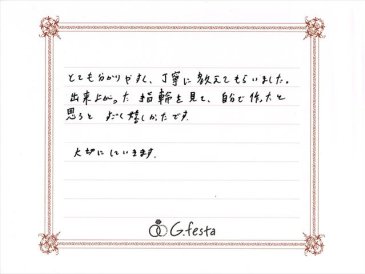 とても分かりやすく、丁寧に教えてもらいました。
出来上がった指輪を見て、自分で作ったと
思うと すごく嬉しかったです。
大切にしていきます。
G.festa